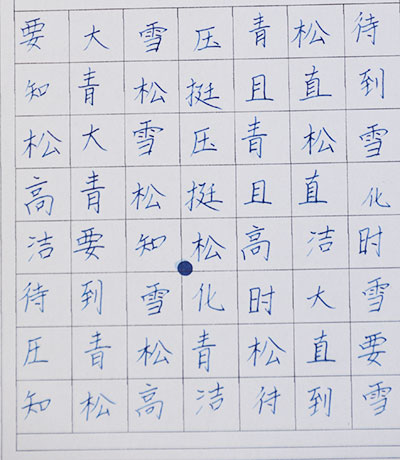 要大雪压青松待
知青松挺且直到
松大雪压青松雪
高青松挺且直化
洁要知松高洁时
待到雪化时大雪
压青松青松直要
知松高洁待到雪